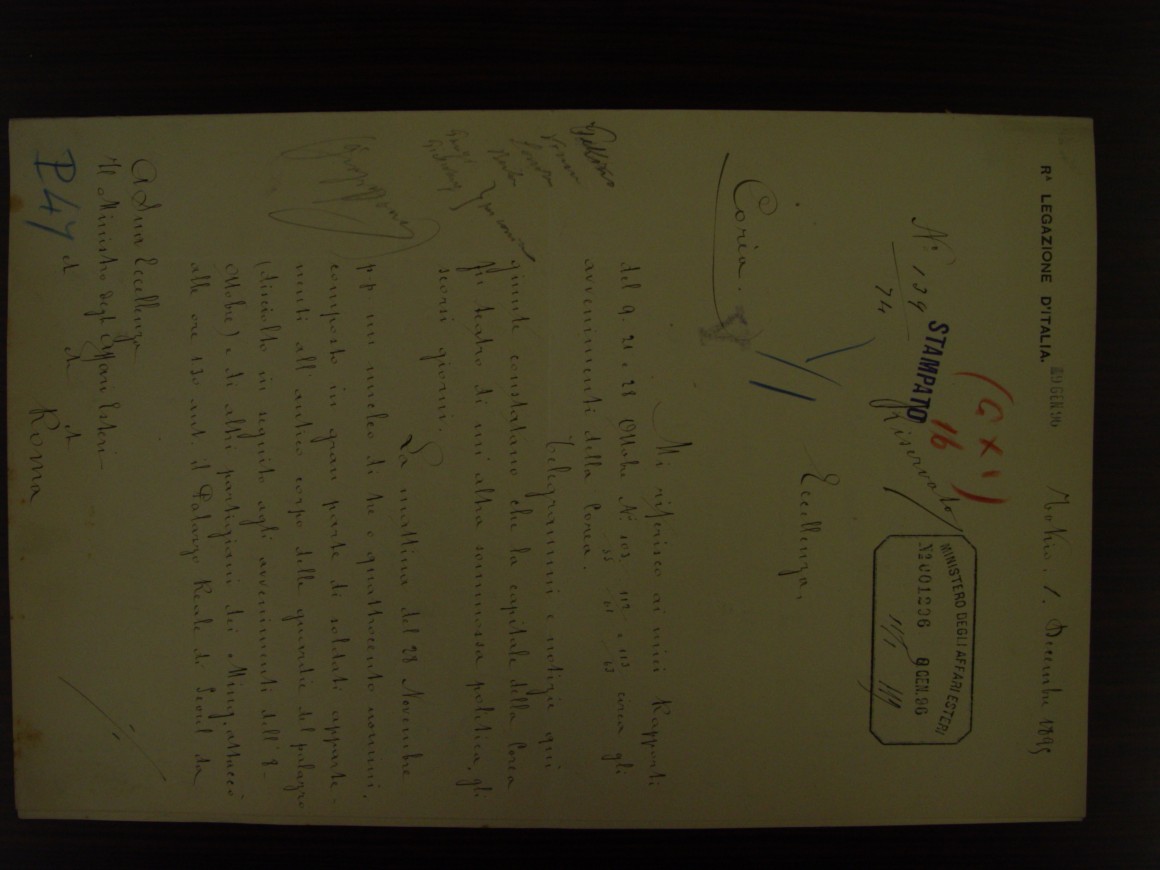 Rª LEGAZIONE D'ITALIA.
29 GEN 96
Tokio, 1. Decembre 1895
(G X I)
16
Nº 139
74
STAMPATO
Riservato
MINISTERO DEGLI AFFARI ESTERI
Nº 001236 8 GEN. 96
Eccellenza,
Corea.
Mi riferisco ai miei Rapporti
del 9. 21 e 28 Ottobre Nº 103 112 e 113 circa gli
avvenimenti della Corea.
Telegrammi e notizie qui
giunte constatano che la capitale della Corea
fu teatro di un'altra sommossa politica, gli
scorsi giorni.
La mattina del 28 Novembre
p.p. un nucleo di tre o quattrocento uomini,
composto in gran parte di soldati apparte-
nenti all'antico corpo delle guardie del palazzo
(disciolto in seguito agli avvenimenti dell'8
Ottobre) e di altri partigiani dei Ming, attaccò
alle ore 1.30 ant. il Palazzo Reale di Seoul da
A Sua Eccellenza
Il Ministro degli Affari Esteri
P47
Roma